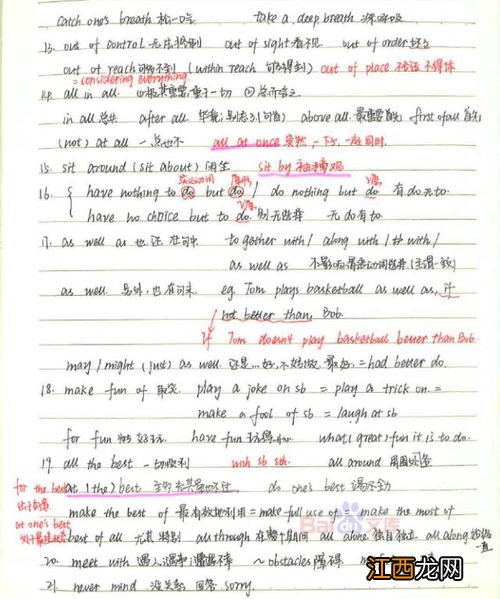 catch one's breath 松一口气 take a deep breath 深呼吸
13. out of control 无法控制 out of sight 看不见 out of order 坏了
out of reach 可够不到 (within reach 可够得到) out of place 不恰当 不得体
= considering everything
14. all in all. ①极其重要, 重于一切 ②总而言之
in all 总共 after all. 毕竟; 别忘了(句首) above all. 最重要 首先 first of all 首先
(not) at all 一点也不 all at once 突然, 一下子, 一起同时.
15. sit around (sit about) 闲坐 sit by 袖手旁观
16. { have nothing to do but do / do nothing but do 有do无to.
have no choice but to do. 别无选择 无do有to.
17. as well as 也, 还 在句中 together with / along with / with /
as well as 不影响谓语动词
as well. 另外, 也 在句末 eg. Tom plays basketball as well as, if
not better than, Bob.
Tom doesn't play basketball better than Bob.
may / might (just) as well. 还是...好, 不妨做 最好. = had better do.
18. make fun of 取笑 play a joke on sb = play a trick on. =
make a fool of sb = laugh at sb
for fun 为了好玩. have fun 玩得 what (great) fun it is to do.
19. all the best 一切顺利 wish sb sth. all around 周围
for the best at (the) best 至多 充其量 do one's best 竭尽全力
at one's best make the best of 最有效地利用 = make full use of = make the most of
best of all 尤其 特别 all through 在整个期间 all alone 独自 独立 all along 始终 一直
20. meet with 遇见 遭遇 ~ obstacles 障碍
21. never mind 没关系 回答 sorry.
Bai 文库
江西龙网